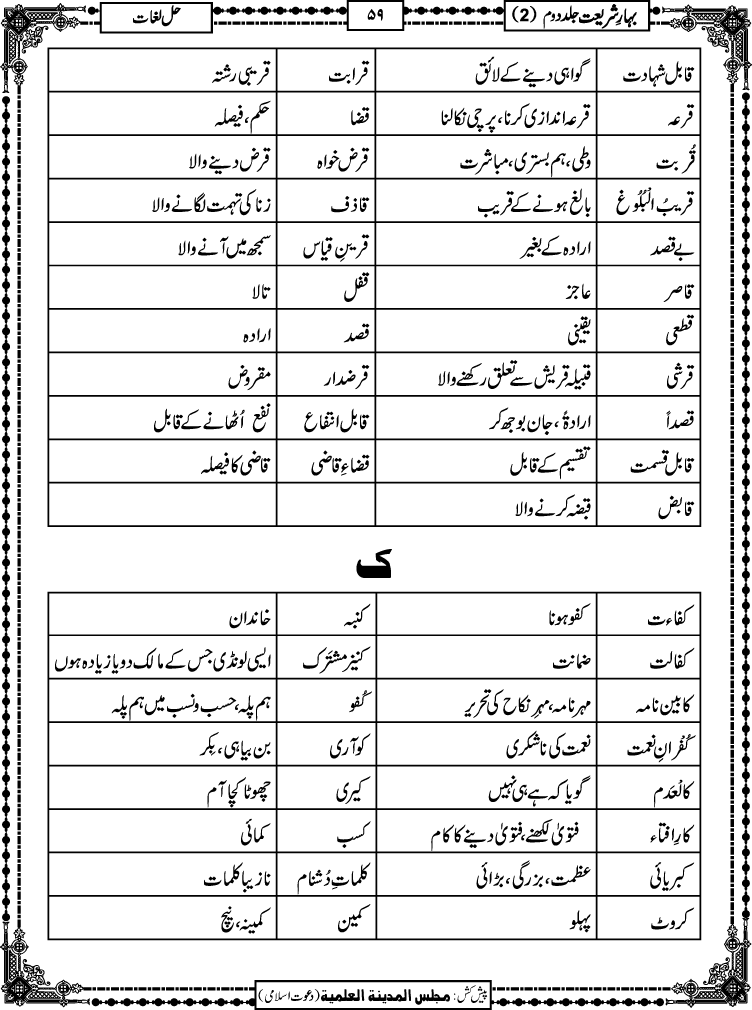 بہارِ شریعت جلد دوم (2) ۵۹ حل لغات
قابل شہادت گواہی دینے کے لائق قرابت قریبی رشتہ
قرعہ قرعہ اندازی کرنا، پرچی نکالنا قضا حکم، فیصلہ
قُربت وطی، ہم بستری، مباشرت قرض خواہ قرض دینے والا
قریبُ الْبُلُوغ بالغ ہونے کے قریب قاذف زنا کی تہمت لگانے والا
بے قصد ارادہ کے بغیر قرینِ قیاس سمجھ میں آنے والا
قاصر عاجز قفل تالا
قطعی یقینی قصد ارادہ
قرشی قبیلہ قریش سے تعلق رکھنے والا قرضدار مقروض
قصداً ارادۃً، جان بوجھ کر قابل انتفاع نفع اُٹھانے کے قابل
قابل قسمت تقسیم کے قابل قضاءِ قاضی قاضی کا فیصلہ
قابض قبضہ کرنے والا
ک
کفاءت کفو ہونا کنبہ خاندان
کفالت ضمانت کنیز مشترَک ایسی لونڈی جس کے مالک دو یا زیادہ ہوں
کابین نامہ مہر نامہ، مہرِ نکاح کی تحریر کُفو ہم پلہ، حسب ونسب میں ہم پلہ
کُفْرانِ نعمت نعمت کی ناشکری کوآری بن بیاہی، بِکر
کالْعَدم گویا کہ ہے ہی نہیں کیری چھوٹا کچا آم
کارِ افتاء فتویٰ لکھنے، فتویٰ دینے کا کام کسب کمائی
کبریائی عظمت، بزرگی، بڑائی کلماتِ دُشنام نازیبا کلمات
کروٹ پہلو کمین کمینہ، نیچ
پیش کش: مجلس المدینة العلمیة (دعوت اسلامی)